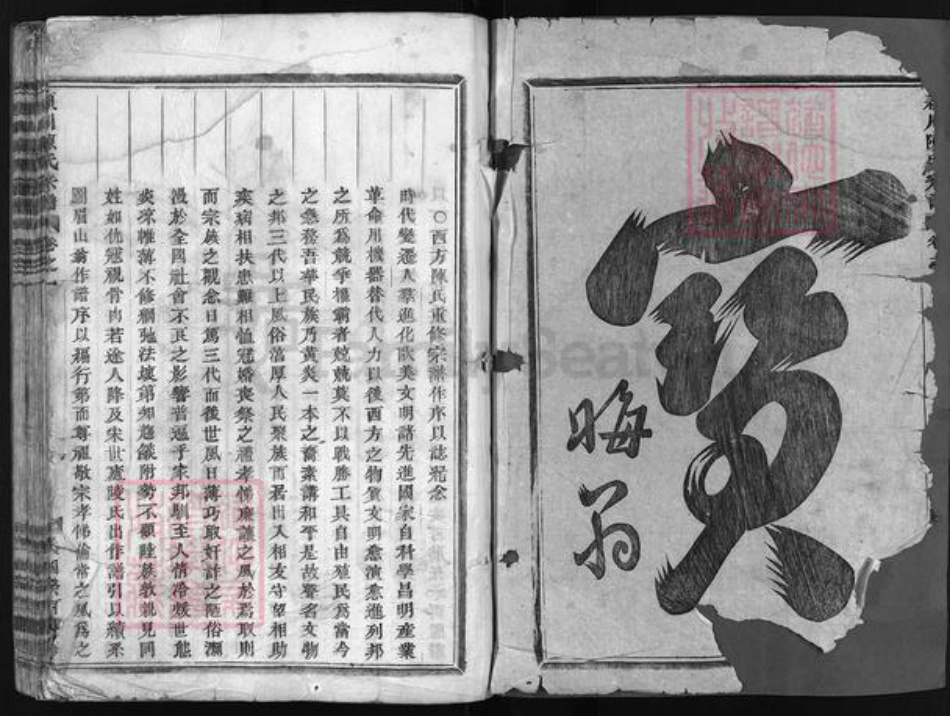 寶
晦翁
○西方陳氏重修宗譜作序以誌紀念
時代變遷人羣進化歐美文明諸先進國家自科學昌明產業
革命用機器替代人力以後西方之物質文明愈演愈進列邦
之所爲競爭權霸者兢兢莫不以戰勝工具自由殖民爲當今
之急務吾華民族乃黃炎一本之裔素講和平是故聲名文物
之邦三代以上風俗淳厚人民聚族而居出入相友守望相助
疾病相扶患難相恤冠婚喪祭之禮孝悌廉讓之風於焉取則
而宗族之觀念日篤三代而後世風日薄巧取奸詐之陋俗瀰
漫於全國社會不良之影響普遍乎家邦馴至人情冷煖世態
炎凉帷薄不修綱弛法壞第知趨儀附勢不顧睦族敦親見同
姓如仇冠視骨肉若途人降及宋世廬陵氏出作譜引以續系
圖眉山翁作譜序以編行第而尊祖敬宗孝悌倫常之風爲之